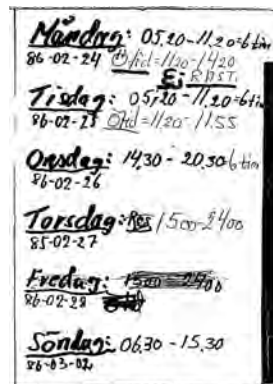 Måndag: 05.20-11.20=6tim
86-02-24 Ötid=1120-1420
Ej RAST.
Tisdag: 05,20-11.20=6tim
86-02-25 Ötid=1120-11.55
Onsdag: 14,30-20.30 6tim
86-02-26
Torsdag: Res 1500-2400
85-02-27
Fredag: 1500 2400
86-02-28
Söndag: 06.30-15.30
86-03-02